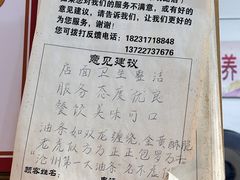 如果您对我们的服务不满意,或有好的
意见建议,请告诉我们,让我们更好的
为您服务,谢谢!
您可拨打反馈电话: 18231718848
13722737676
意见建议
店面卫生整洁
服务态度优良
餐饮美味可口
油条如双龙缠绕,金黄酥脆
老虎似方方正正,包罗万千
沧州第一大油条名不虚传
顾客姓名
养